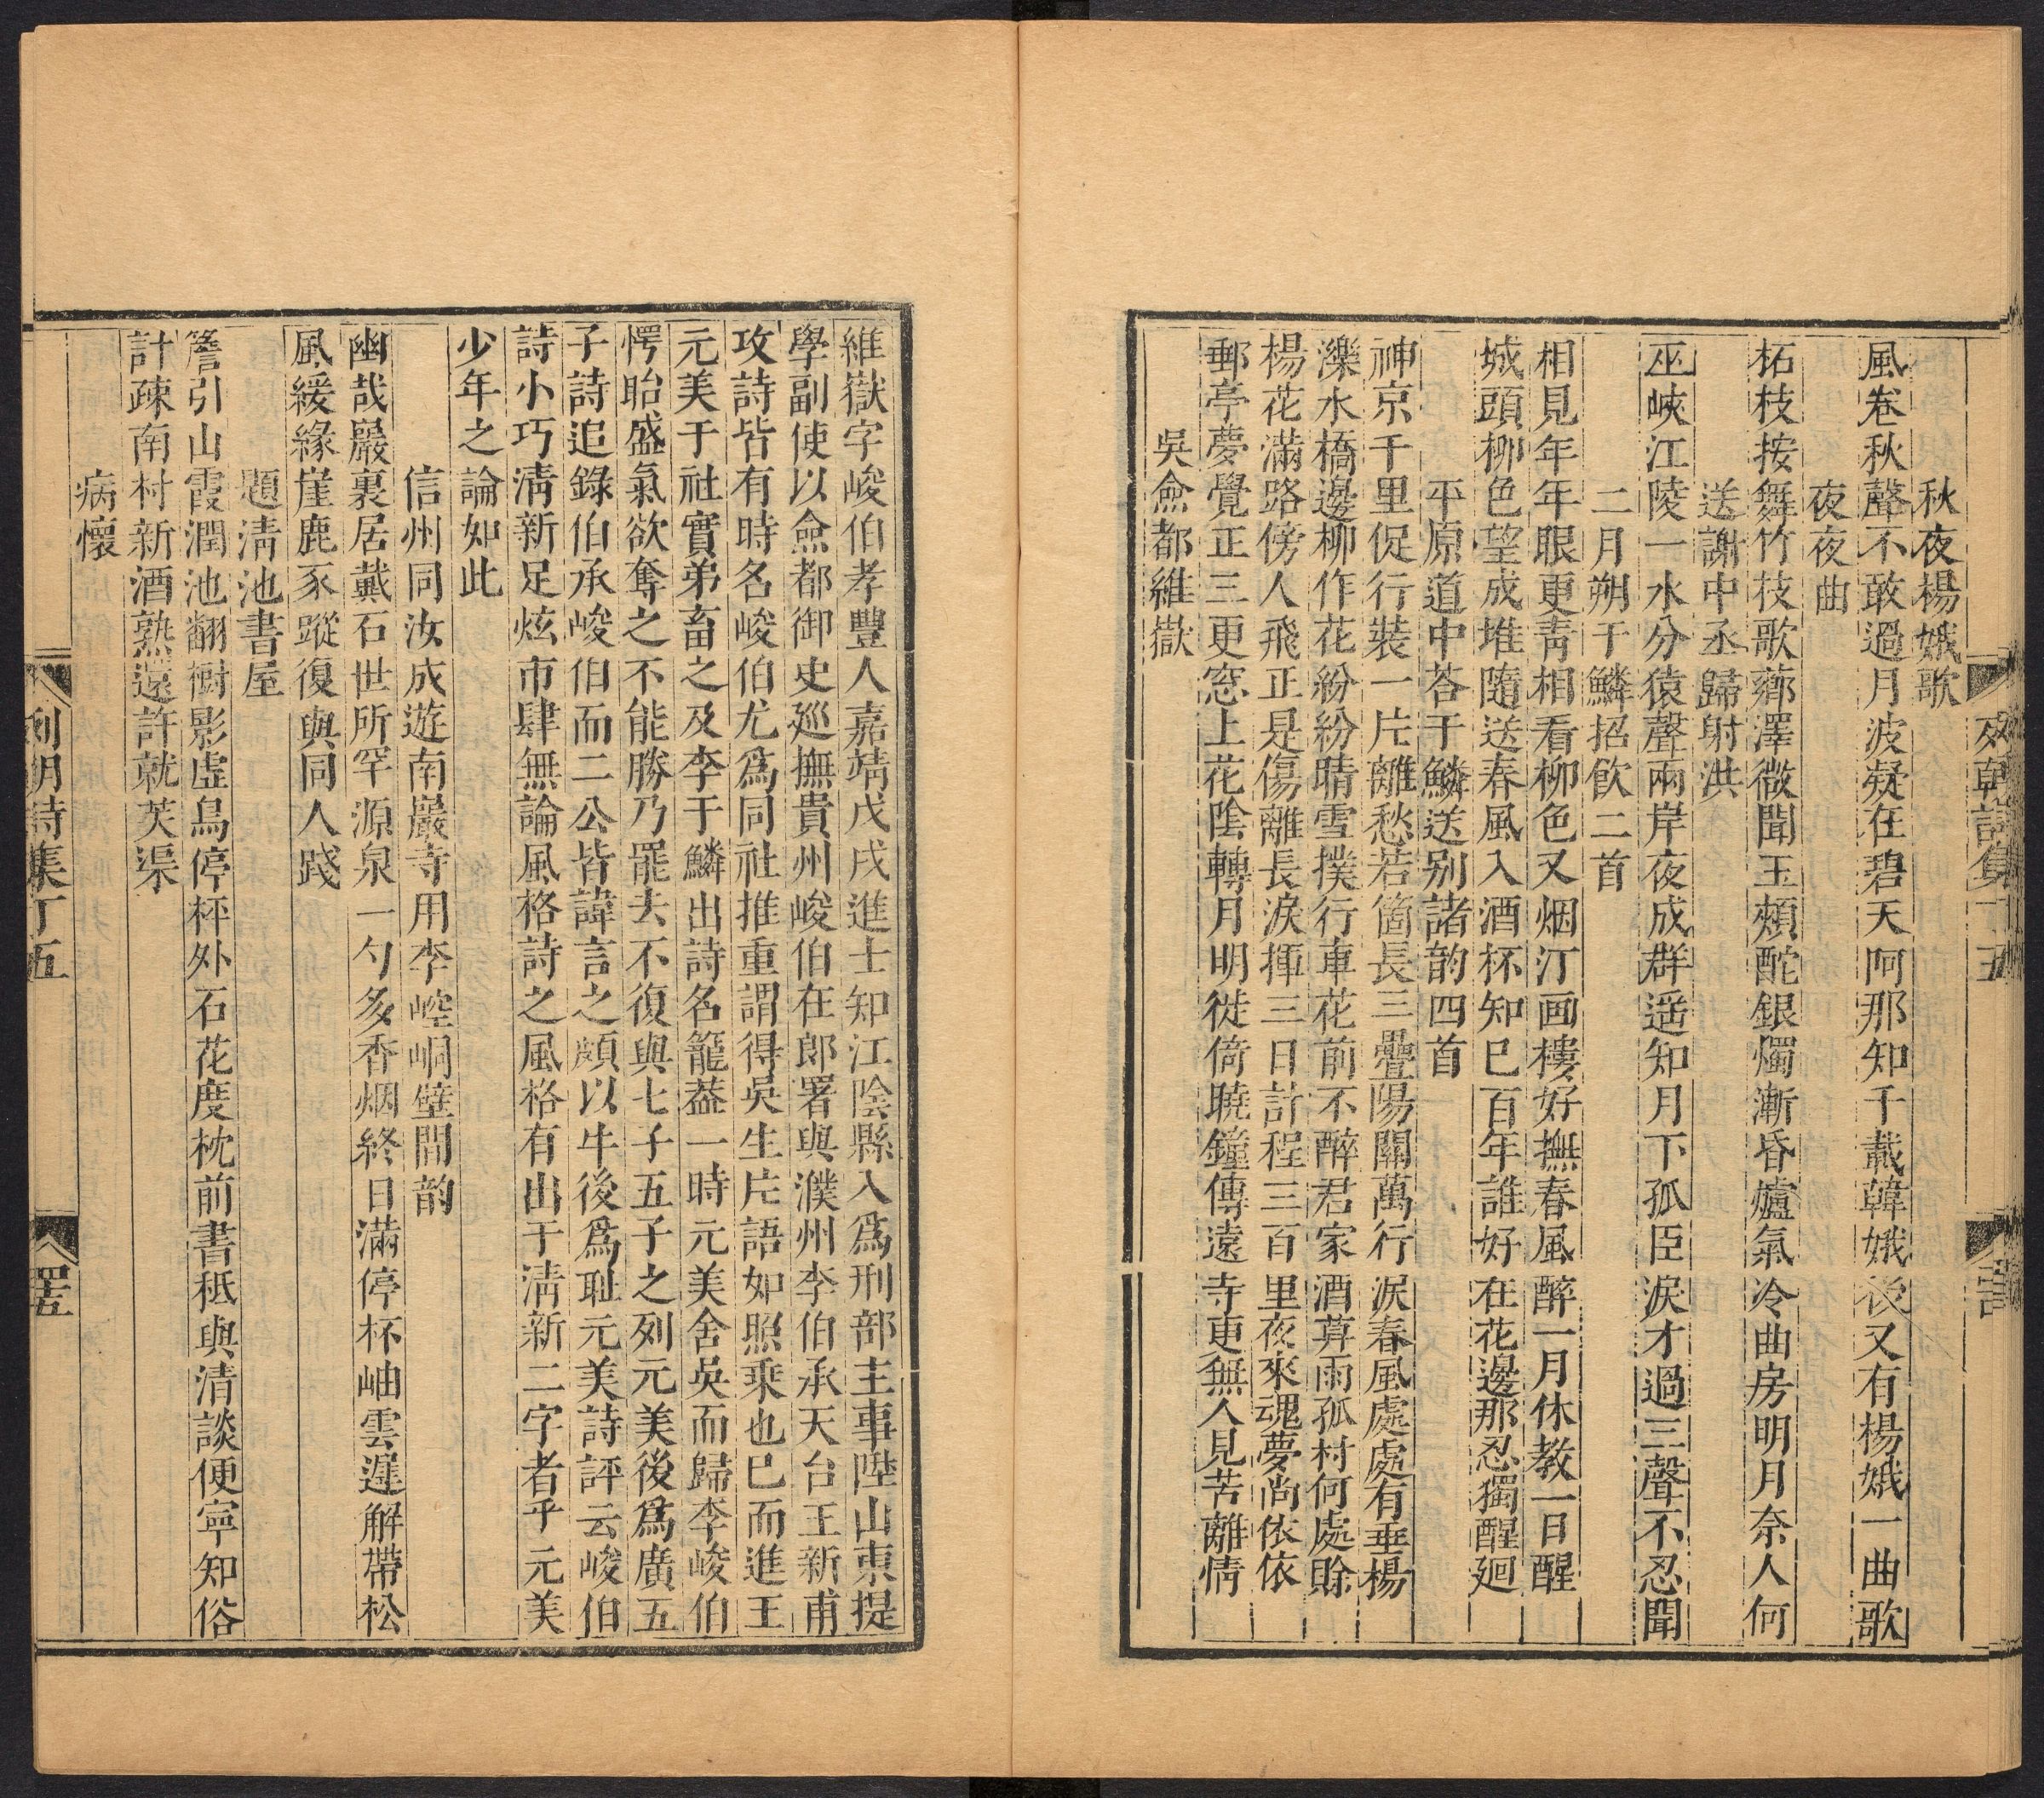 秋夜楊娥歌
風卷秋聲不敢過月波凝在碧天阿那知千載韓娥後又有楊娥一曲歌
夜夜曲
柘枝按舞竹枝歌薌澤微聞玉頰酡銀燭漸昏爐氣冷曲房明月奈人何
送謝中丞歸射洪
巫峽江陵一水分猿聲兩岸夜成群遥知月下孤臣淚才過三聲不忍聞
二月朔于鱗招飲二首
相見年年眼更靑相看柳色又烟汀画樓好撫春風醉一月休教一日醒
城頭柳色望成堆隨送春風入酒杯知巳百年誰好在花邊那忍獨醒廻
平原道中荅于鱗送别諸韵四首
神京千里促行裝一片離愁若箇長三疊陽關萬行淚春風處處有垂楊
濼水橋邊柳作花紛紛晴雪撲行車花前不醉君家酒莫雨孤村何處賒
楊花滿路傍人飛正是傷離長淚揮三日計程三百里夜來魂夢尚依依
郵亭夢覺正三更窓上花陰轉月明徙倚曉鐘傳遠寺更無人見苦離情
吳僉都維嶽
維嶽字峻伯孝豐人嘉靖戊戌進士知江陰縣入爲刑部主事陞山東提
學副使以僉都御史廵撫貴州峻伯在郎署與濮州李伯承天台王新甫
攻詩皆有時名峻伯尤爲同社推重謂得吳生片語如照乘也巳而進王
元美于社實弟畜之及李于鱗出詩名籠葢一時元美舍吳而歸李峻伯
愕眙盛氣欲奪之不能勝乃罷去不復與七子五子之列元美後爲廣五
子詩追錄伯承峻伯而二公皆諱言之頗以牛後爲耻元美詩評云峻伯
詩小巧淸新足炫市肆無論風格詩之風格有出于淸新二字者乎元美
少年之論如此
信州同汝成遊南巖寺用李崆峒壁間韵
幽哉巖裏居戴石世所罕源泉一勺多香烟終日滿停杯岫雲遲解帶松
風緩緣崖鹿豕蹤復與同人踐
題淸池書屋
簷引山霞潤池翻樹影虛鳥停枰外石花度枕前書秪與清談便寧知俗
計疎南村新酒熟還許就芙渠
病懷
列朝詩集丁五
四五